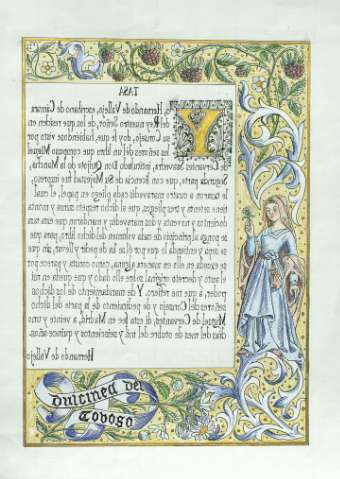 TASA
Yo, Hernando de Vallejo, escribano de Cámara
del Rey nuestro Señor, de los que residen en
su Consejo, doy fe que, habiéndose visto por
los señores del un libro que compuso Miguel
de Cervantes Saavedra, intitulado Don Quijote de la Mancha,
Segunda parte, que con licencia de Su Majestad fue impreso,
le tasaron a cuatro maravedís cada pliego en papel, el cual
tiene setenta y tres pliegos, que al dicho respeto suma y monta
docientos y noventa y dos maravedís, y mandaron que esta tasa
se ponga al principio de cada volumen del dicho libro, para que
se sepa y entienda lo que por él se ha de pedir y llevar, sin que
se exceda en ello en manera alguna, como consta y parece por
el auto y decreto original sobre ello dado y que queda en mi
poder, a que me refiero. Y de mandamiento de los dichos
señores del Consejo y de pedimiento de la parte del dicho
Miguel de Cervantes, di esta fee en Madrid, a veinte y uno
días del mes de otubre del mil y seiscientos y quince años.
Hernando de Vallejo
Dulcinea del
Toboso